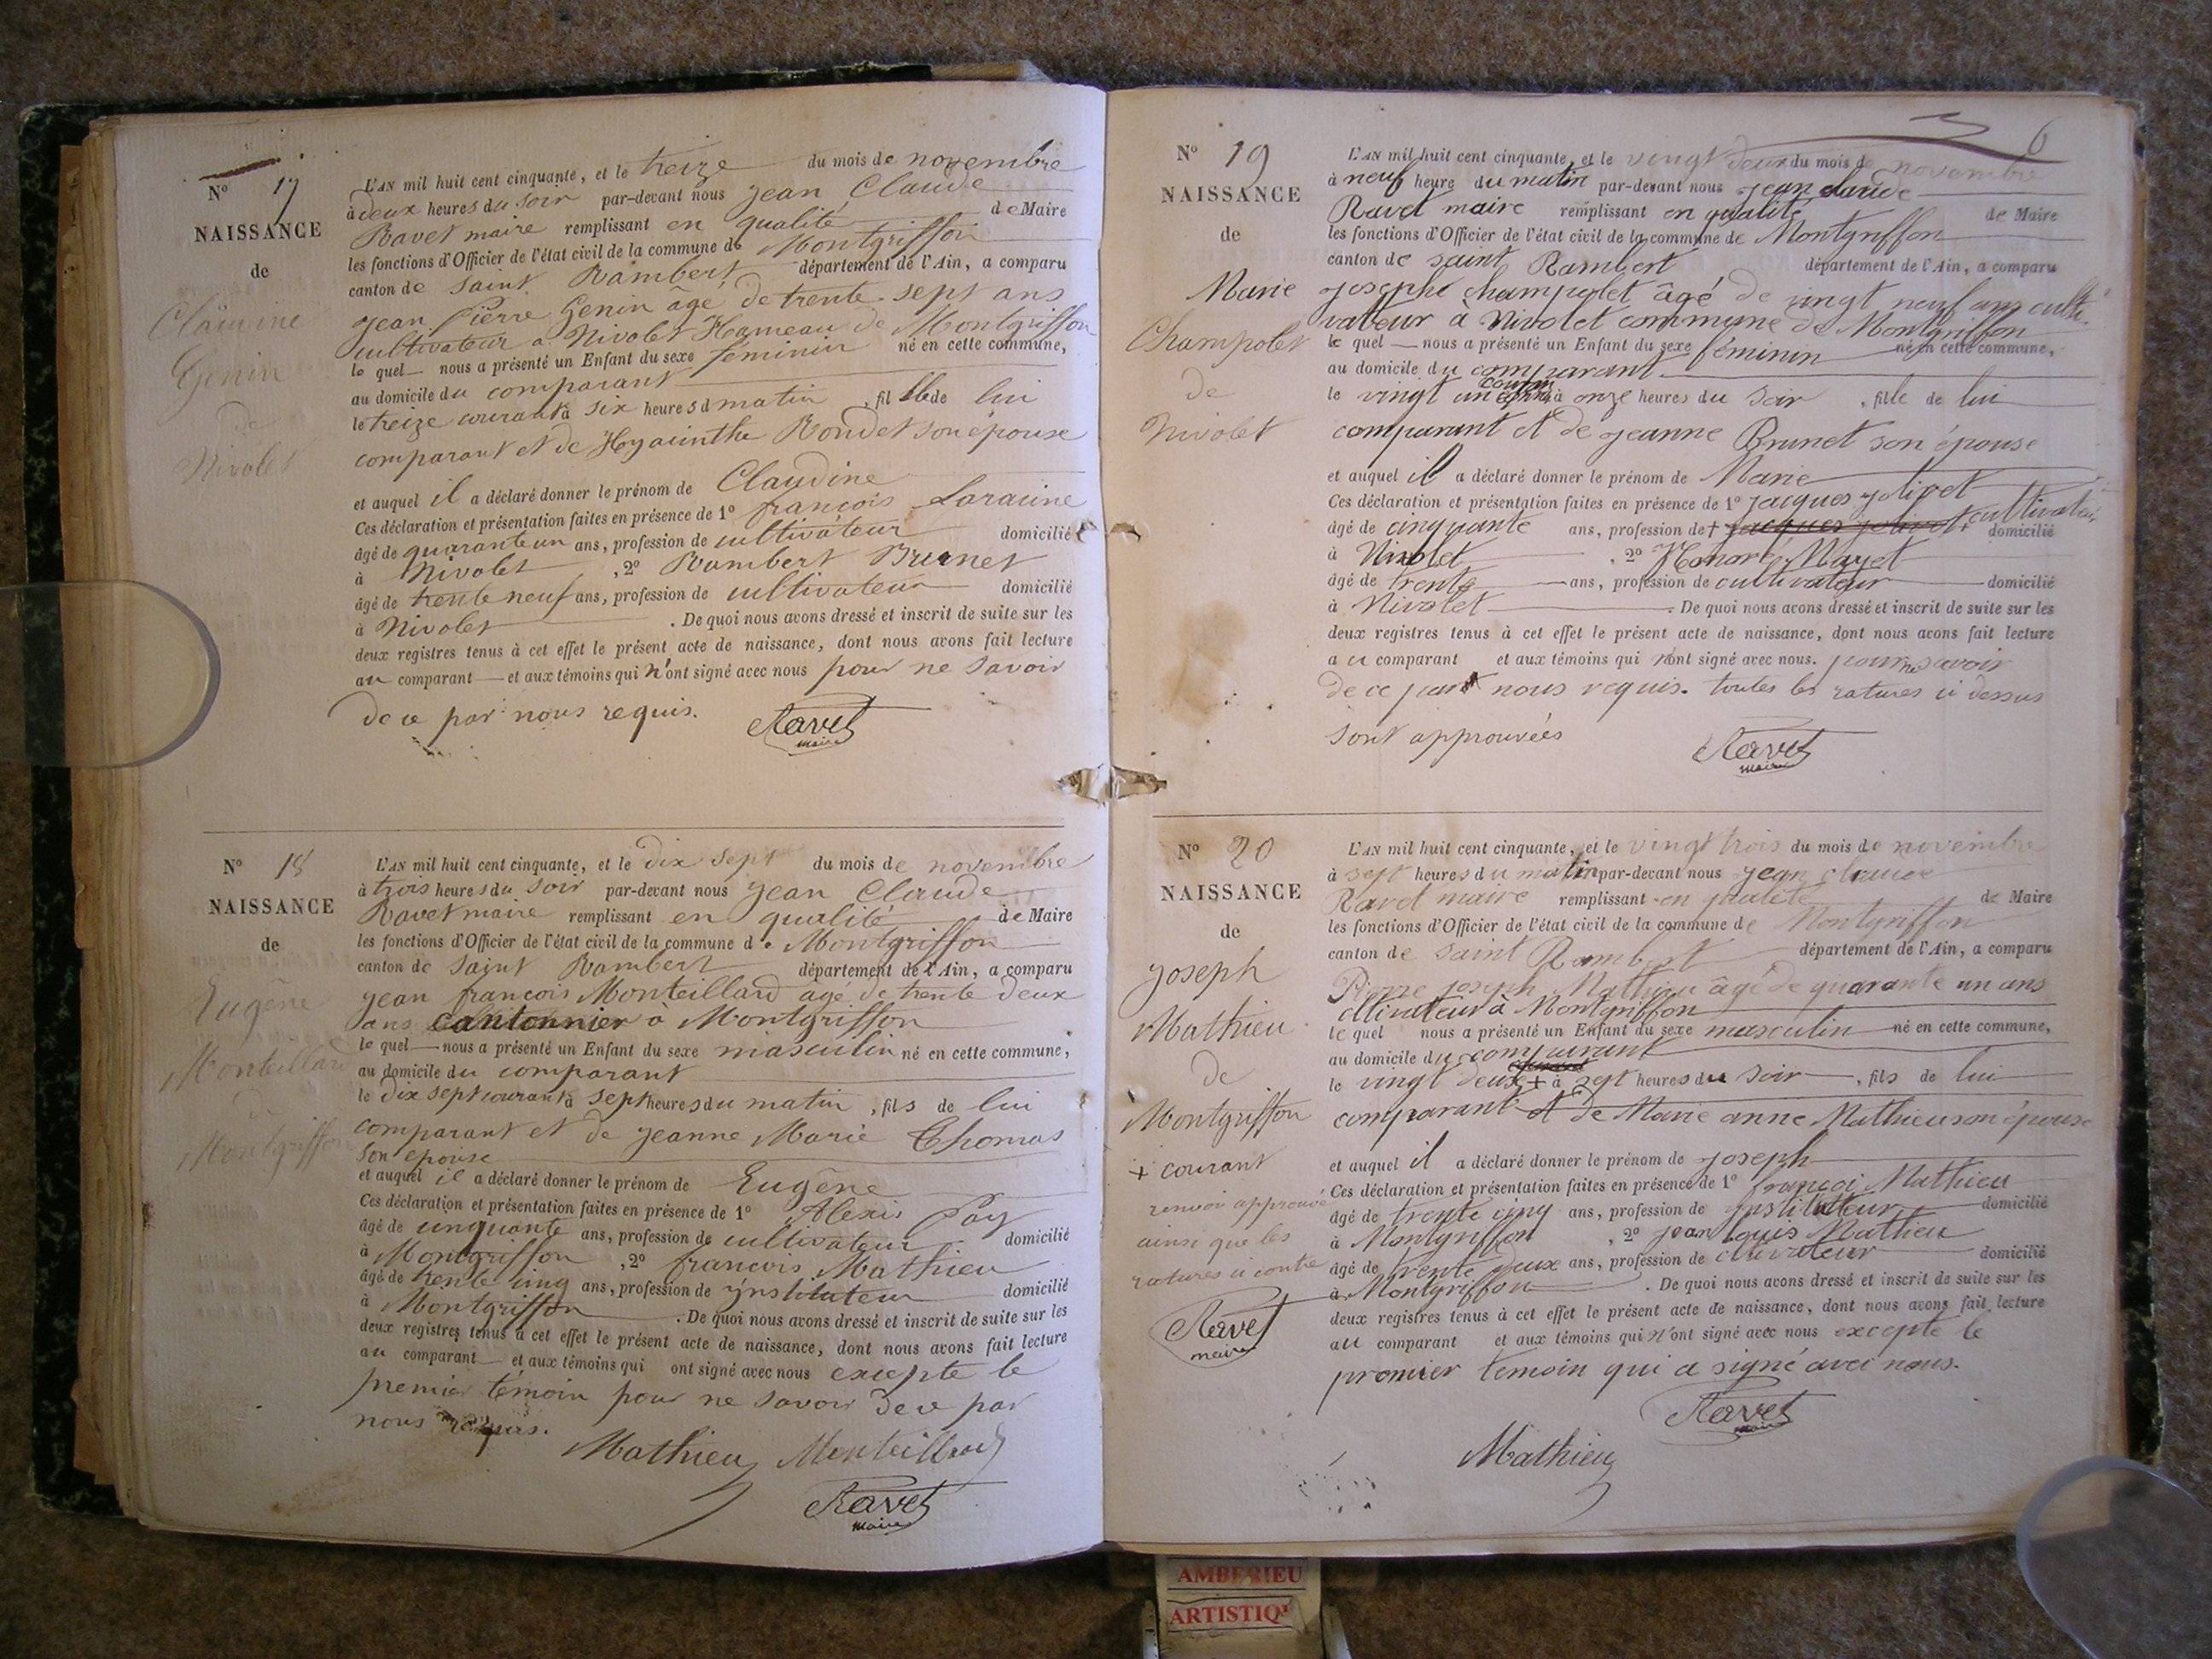 N° 17
NAISSANCE
de
Claudine
Genin
de
Nivolet
L'AN mil huit cent cinquante, et le treize du mois de novembre
à deux heures du soir par-devant nous jean Claude
Ravet maire remplissant en qualité de Maire
les fonctions d'Officier de l'état civil de la commune de Montgriffon
canton de saint Rambert département de l'Ain, a comparu
jean Pierre Genin âgé de trente-sept ans
cultivateur a Nivolet Hameau de Montgriffon
le quel nous a présenté un Enfant du sexe féminin né en cette commune,
au domicile du comparant
le treize courant à six heures d matin , fille de lui
comparant et de Hyacinthe Rondet son épouse
et auquel il a déclaré donner le prénom de Claudine
Ces déclaration et présentation faites en présence de 1° françois Laracine
âgé de quarante un ans, profession de cultivateur domicilié
à Nivolet , 2° Rambert Brunet
âgé de trente neuf ans, profession de cultivateur domicilié
à Nivolet . De quoi nous avons dressé et inscrit de suite sur les
deux registres tenus à cet effet le présent acte de naissance, dont nous avons fait lecture
au comparant et aux témoins qui n'ont signé avec nous pour ne savoir
de ce par nous requis.
Ravet
maire
N° 18
NAISSANCE
de
Eugêne
Monteillard
de
Montgriffon
L'AN mil huit cent cinquante, et le dix sept du mois de novembre
à trois heures du soir par-devant nous jean Claude
Ravet maire remplissant en qualité de Maire
les fonctions d'Officier de l'état civil de la commune de Montgriffon
canton de saint Rambert département de l'Ain, a comparu
jean françois Monteillard âgé de trente deux
ans cantonnier à Montgriffon
le quel nous a présenté un Enfant du sexe masculin né en cette commune,
au domicile du comparant
le dix sept courant à sept heures du matin , fils de lui
comparant et de jeanne Marie Thomas
son epouse
et auquel il a déclaré donner le prénom de Eugêne
Ces déclaration et présentation faites en présence de 1° Alexis Pay
âgé de cinquante ans, profession de cultivateur domicilié
à Montgriffon , 2° françois Mathieu
âgé de trente cinq ans, profession de ynstituteur domicilié
à Montgriffon . De quoi nous avons dressé et inscrit de suite sur les
deux registres tenus à cet effet le présent acte de naissance, dont nous avons fait lecture
au comparant et aux témoins qui ont signé avec nous excepte le
premier témoin pour ne savoir de ce par
nous requis.
Mathieu Monteillard
Ravet
maire
6
N° 19
NAISSANCE
de
Marie
Champolet
de
Nivolet
L'AN mil huit cent cinquante, et le vingt deux du mois de novembre
à neuf heure du matin par-devant nous jean claude
Ravet maire remplissant en qualité de Maire
les fonctions d'Officier de l'état civil de la commune de Montgriffon
canton de saint Rambert département de l'Ain, a comparu
josephe champolet âgé de vingt neuf ans culti-
vateur à Nivolet commune de Montgriffon
le quel nous a présenté un Enfant du sexe féminin né en cette commune,
au domicile du comparant
le vingt un courant à onze heures du soir , fille de lui
comparant et de jeanne Brunet son épouse
et auquel il a déclaré donner le prénom de Marie
Ces déclaration et présentation faites en présence de 1° jacques jolivet
âgé de cinquante ans, profession de + jacques jolivet + cultivateur domicilié
à Nivolet , 2° Honoré Mayet
âgé de trente ans, profession de cultivateur domicilié
à Nivolet . De quoi nous avons dressé et inscrit de suite sur les
deux registres tenus à cet effet le présent acte de naissance, dont nous avons fait lecture
au comparant et aux témoins qui n'ont signé avec nous. pour ne savoir
de ce part nous requis. toutes les ratures ci dessus
sont approuvées
Ravet
maire
N° 20
NAISSANCE
de
joseph
Mathieu
de
Montgriffon
+ courant
renvoi approuvé
ainsi que les
ratures ci contre
Ravet
maire
L'AN mil huit cent cinquante, et le vingt trois du mois de novembre
à sept heures du matin par-devant nous jean claude
Ravet maire remplissant en qualité de Maire
les fonctions d'Officier de l'état civil de la commune de Montgriffon
canton de saint Rambert département de l'Ain, a comparu
Pierre joseph Mathieu âgé de quarante un ans
cltivateur à Montgriffon
le quel nous a présenté un Enfant du sexe masculin né en cette commune,
au domicile du comparant
le vingt deux + à sept heures du soir , fils de lui
comparant et de Marie anne Mathieu son épouse
et auquel il a déclaré donner le prénom de joseph
Ces déclaration et présentation faites en présence de 1° françoi Mathieu
âgé de trente cinq ans, profession de jnstituteur domicilié
à Montgriffon , 2° jean louis Mathieu
âgé de trente deux ans, profession de cltivateur domicilié
à Montgriffon . De quoi nous avons dressé et inscrit de suite sur les
deux registres tenus à cet effet le présent acte de naissance, dont nous avons fait lecture
au comparant et aux témoins qui n'ont signé avec nous excepte le
promier temoin qui a signé avec nous.
Ravet
maire
Mathieu
AMBERIEU
ARTISTIQ